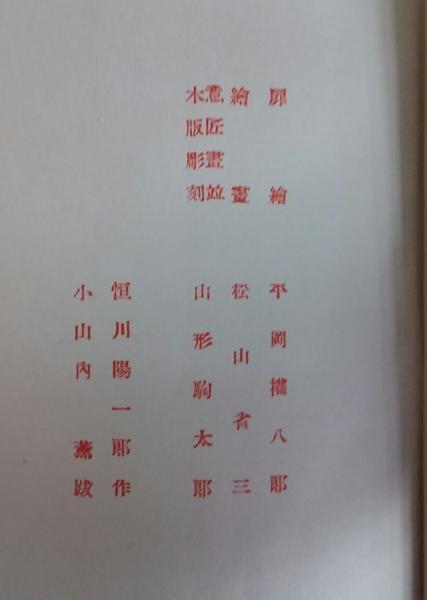 扉繪 平岡權八郎
繪畫 松山省三
意匠畫並木版彫刻 山形駒太郎
恒川陽一郎作
小山內薰跋